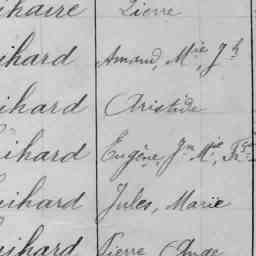 ihaire Pierre
ihard Amand, Mie, Jh
ihard Aristide
ihard Eugène, Jn Mie, Fçs
ihard Jules, Marie
ihard Pierre Ange